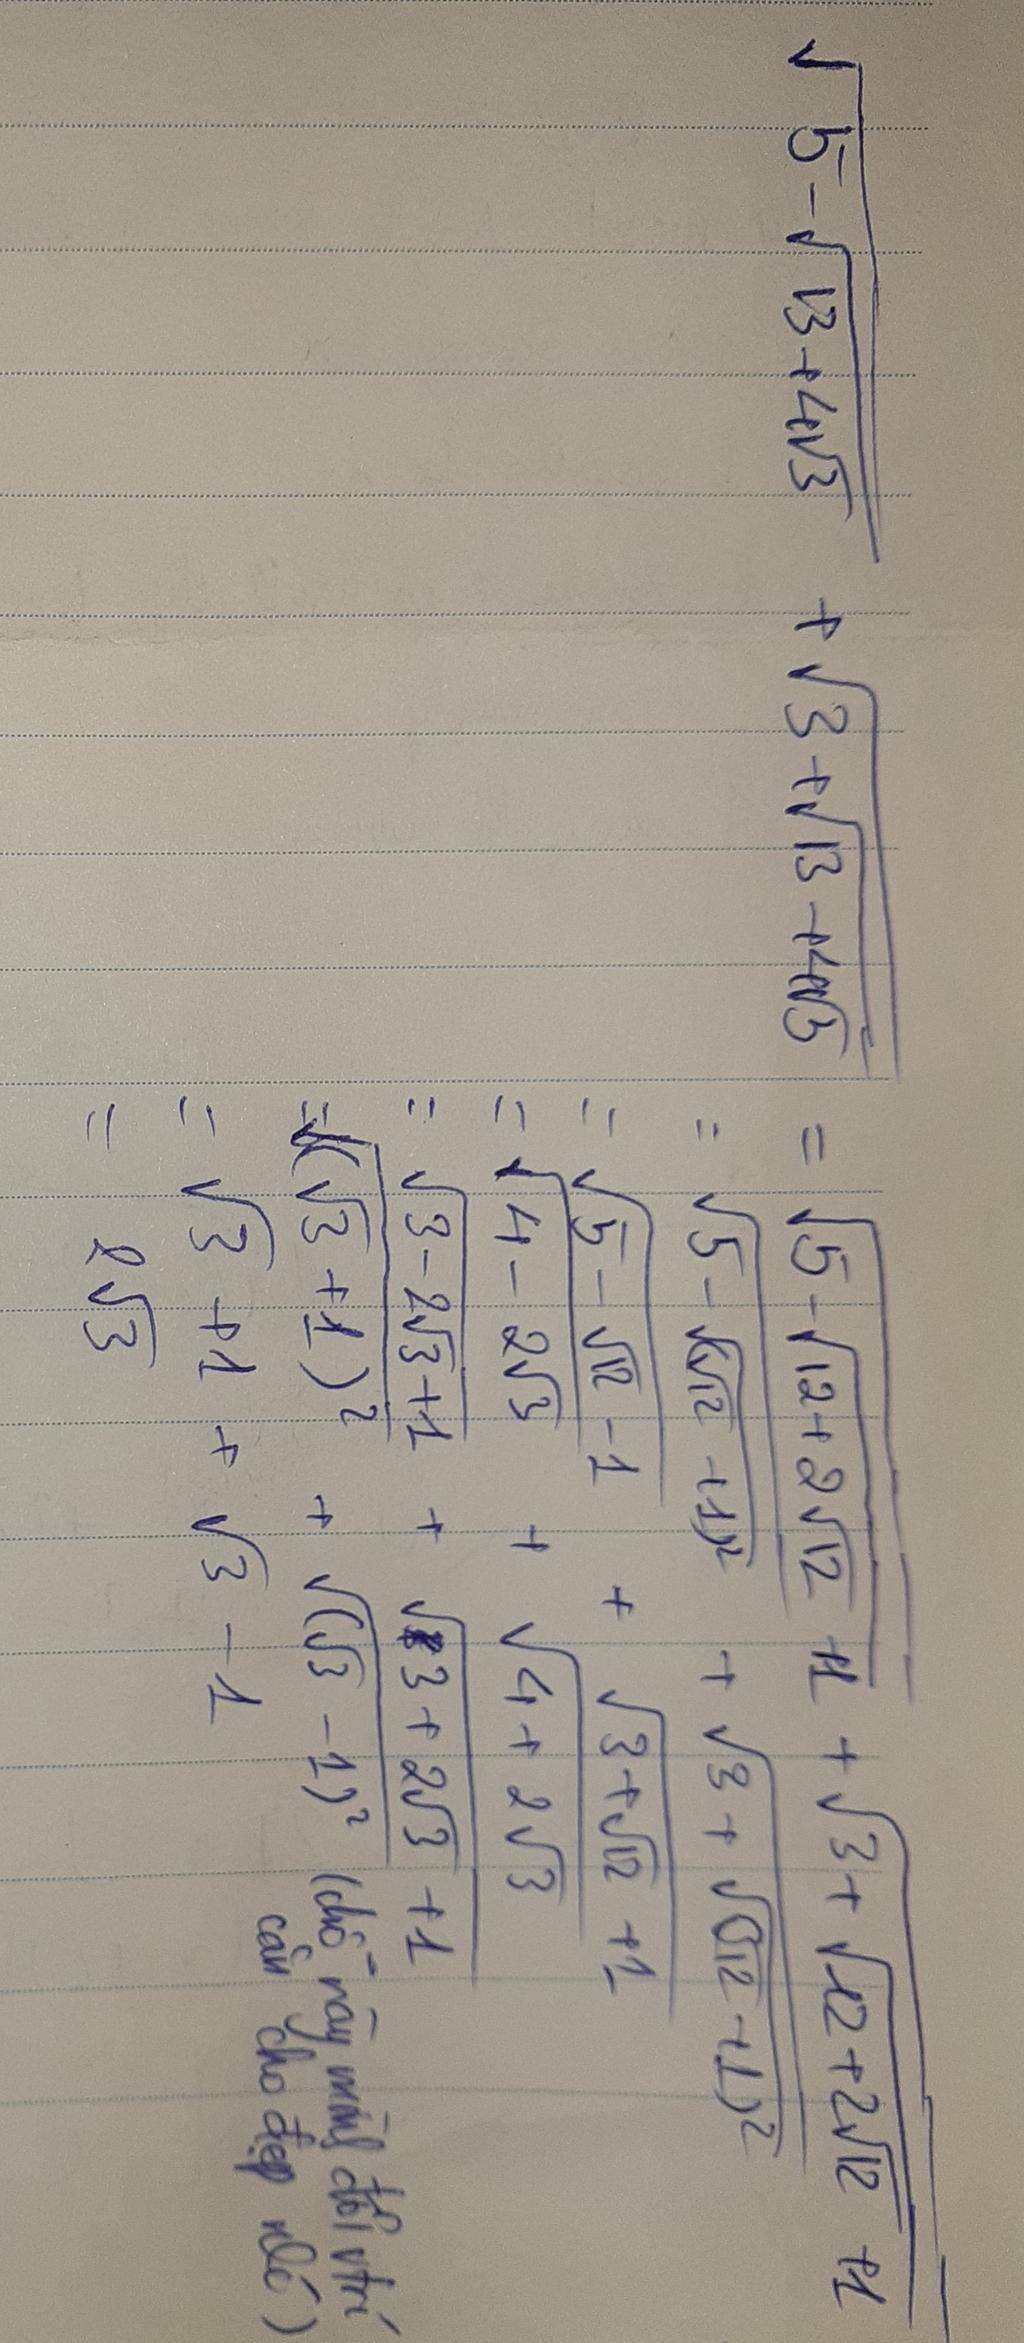 √(5 - √(13 + 4√3)) + √(3 + √(13 + 4√3)) = √(5 - √(12 + 2√12 + 1)) + √(3 + √(12 + 2√12 + 1))
= √(5 - √((√12 + 1)²)) + √(3 + √((√12 + 1)²))
= √(5 - √12 - 1) + √(3 + √12 + 1)
= √(4 - 2√3) + √(4 + 2√3)
= √(3 - 2√3 + 1) + √(3 + 2√3 + 1)
= √((√3 + 1)²) + √((√3 - 1)²) (chỗ này mình đổi vtrí
căn cho đẹp nhé)
= √3 + 1 + √3 - 1
= 2√3